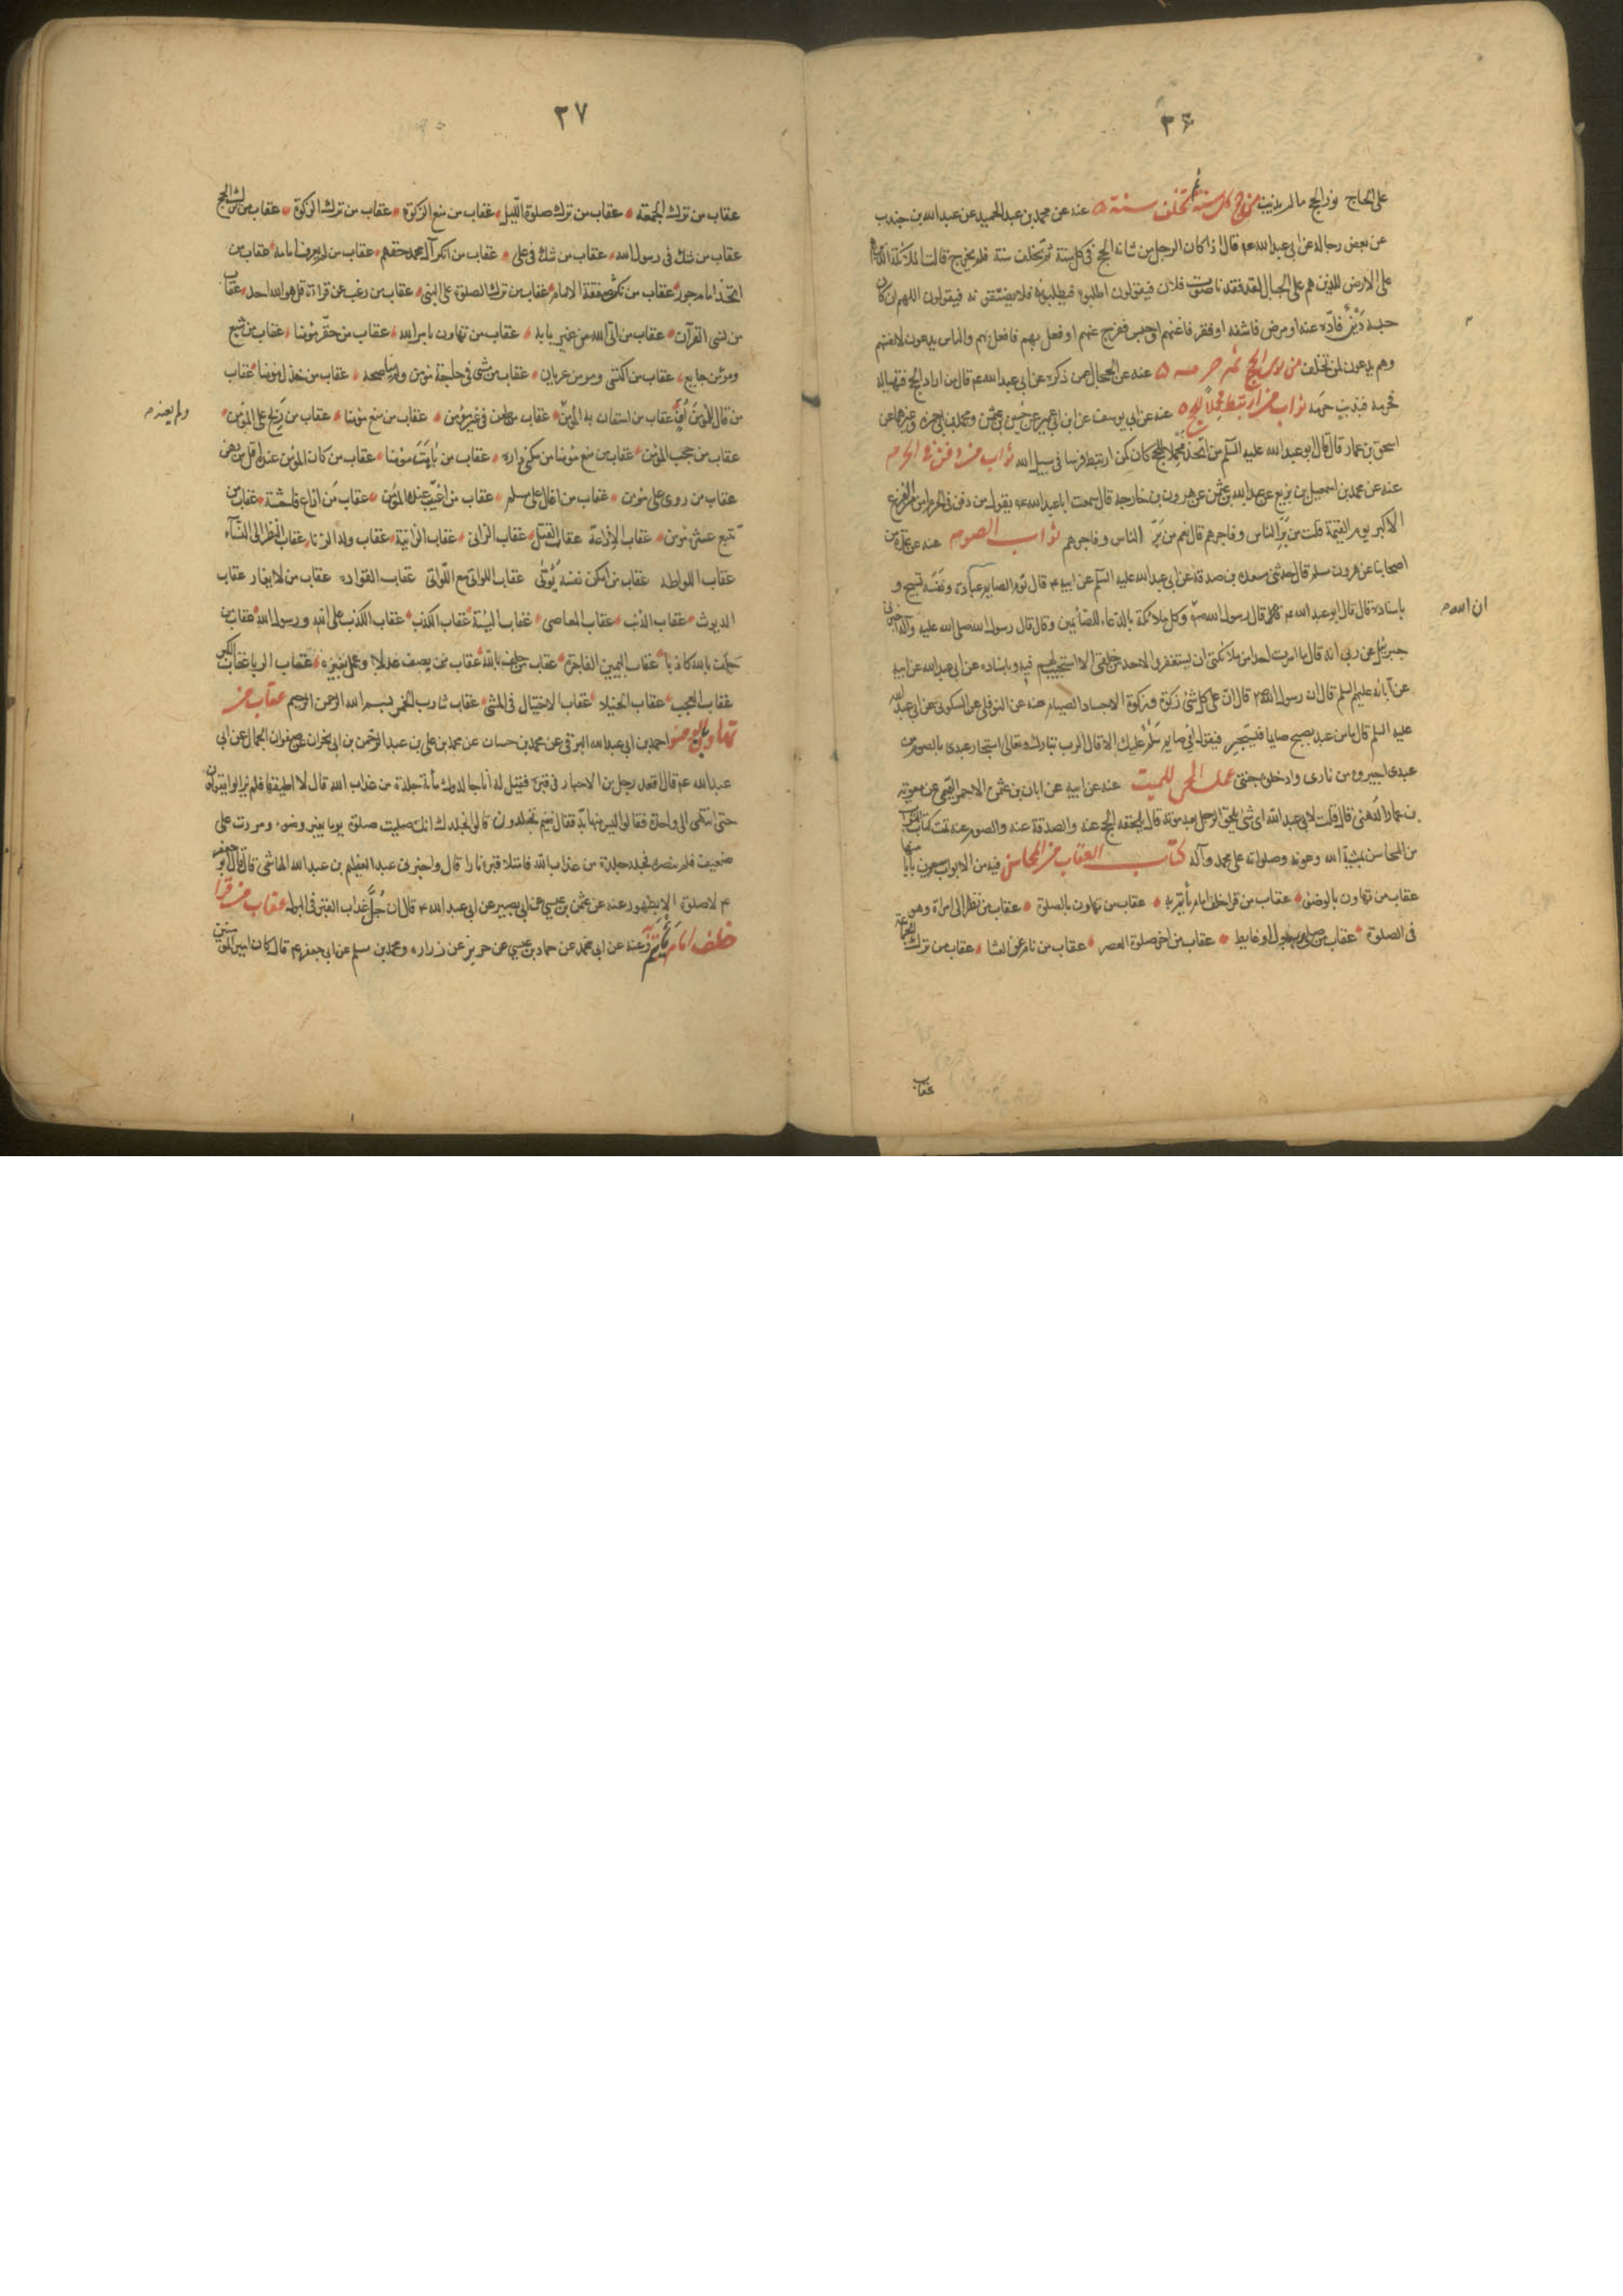 ۳۶
على الحاج نور الحج ما لم يذنب من حج كل سنة ثم تخلف سنة عنه عن محمد بن عبد الحميد عن عبد الله بن جندب
عن بعض رجاله عن ابي عبد الله ع قال اذا كان الرجل من شانه الحج في كل سنة ثم تخلف سنة فلم يخرج قالت الملائكة الذين
على الارض للذين هم على الجبال لقد فقدنا صوت فلان فيقولون اطلبوه فيطلبونه فلا يصيبونه فيقولون اللهم ان كان
حبسه دين فادّه عنه او مرض فاشفه او فقر فاغنهم او حبس ففرج عنهم او فعل بهم فافعل بهم والناس يدعون لانفسهم
وهم يدعون لمن تخلف من نوى الحج ثم حرمه عنه عن الحجال عمن ذكره عن ابي عبد الله ع قال من اراد الحج فتهيا له
فحرمه فبذنب حرمه ثواب من ارتبط محملا للحج عنه عن ابي يوسف عن ابن ابي عمير عن حسين بن عثمن ومحمد بن ابي حمزة وغيرهما عن
اسحق بن عمار قال قال ابو عبد الله عليه السلم من اتخذ محملا للحج كان كمن ارتبط فرسا في سبيل الله ثواب من دفن في الحرم
عنه عن محمد بن اسمعيل بن بزيع عن عبد الله بن عثمن عن هرون بن خارجة قال سمعت ابا عبد الله ع يقول من دفن في الحرم امن من الفزع
الاكبر يوم القيمة قلت من برّ الناس وفاجرهم قال نعم من برّ الناس وفاجرهم ثواب الصوم عنه عن عدة من
اصحابنا عن هرون بن مسلم قال حدثنى مسعدة بن صدقة عن ابي عبد الله عليه السلم عن ابيه ع قال نوم الصايم عبادة ونفسه تسبيح و
باسناده قال قال ابو عبد الله ع قال رسول الله ص وكل ملائكة بالدعاء للصائمين وقال قال رسول الله صلى الله عليه وآله اخبرنى
ان الله
جبرئيل عن ربي انه قال ما امرت احدا من ملائكتي ان يستغفروا لاحد من خلقي الا استجبت لهم فيه وباسناده عن ابي عبد الله عن ابيه
عن آبائه عليهم السلم قال ان رسول الله ص قال ان على كل شئ زكوة وزكوة الاجساد الصيام عنه عن النوفلي عن السكوني عن ابي عبد الله
عليه السلم قال ما من عبد يصبح صايما فيشتم فيقول اني صايم سلام عليك الا قال الرب تبارك وتعالى استجار عبدي بالصوم من
عبدي اجيروه من ناري وادخلوه جنتي عمل الحي للميت عنه عن ابيه عن ابان بن عثمن الاحمر القمى عن معوية
بن عمار الدهني قال قلت لابي عبد الله اي شئ يلحق الرجل بعد موته قال يلحقه الحج عنه والصدقة عنه والصوم عنه تمت كتاب الثواب
من المحاسن بمشية الله وعونه وصلواته على محمد وآله كتاب العقاب من المحاسن فيه من الابواب سبعون بابا
عقاب من تهاون بالوضوء عقاب من قرا خلف امام ياتم به عقاب من تهاون بالصلوة عقاب من نظر الى امراة وهو
في الصلوة عقاب من صلى وبه بول او غايط عقاب من اخر صلوة العصر عقاب من نام عن العشا عقاب من ترك الجماعة
عقاب
۳۷
عقاب من ترك الجمعة عقاب من ترك صلوة الليل عقاب من منع الزكوة عقاب من ترك الزكوة عقاب من ترك الحج
عقاب من شك في رسول الله عقاب من شك في على عقاب من انكر آل محمد حقهم عقاب من لم يعرف امامه عقاب من
اتخذ امام جور عقاب من نكث صفقة الامام عقاب من ترك الصلوة على النبي عقاب من رغب عن قراءة قل هو الله احد عقاب
من نسى القرآن عقاب من اتى الله من غير بابه عقاب من تهاون بامر الله عقاب من حقّر مؤمنا عقاب من شبع
ومومن جايع عقاب من اكتسى ومومن عريان عقاب من مشى في حاجة مومن ولم يناصحه عقاب من خذل مؤمنا عقاب
من قال لمؤمن اف عقاب من استعان به المؤمن ولم يعنه عقاب من طعن في عين مؤمن عقاب من منع مؤمنا عقاب من بلخ على المؤمن
عقاب من حجب المؤمن عقاب من منع مؤمنا من سكنى داره عقاب من باهت مؤمنا عقاب من كان المؤمن عنده اقل من رهن
عقاب من روى على مؤمن عقاب من اغتال على مسلم عقاب من اغتيب عنده المؤمن عقاب من اذاع فاحشة عقاب من
تتبع عثرة مؤمن عقاب الاذاعة عقاب القتل عقاب الزاني عقاب الزانية عقاب ولد الزنا عقاب النظر الى النساء
عقاب اللواطه عقاب من امكن نفسه يُؤتى عقاب اللواتي مع اللواتي عقاب القواده عقاب من لا يغار عقاب
الديوث عقاب الذنب عقاب المعاصي عقاب السيئة عقاب الكذب عقاب الكذب على الله ورسول الله عقاب من
حلف بالله كاذبا عقاب اليمين الفاجرة عقاب من حلف بالله عقاب من يصف عدلا وعمل بغيره عقاب الريا عقاب الكبر
عقاب العجب عقاب الخيلاء عقاب الاختيال في المشي عقاب شارب الخمر بسم الله الرحمن الرحيم عقاب من
تهاون بالوضوء احمد بن ابي عبد الله البرقي عن محمد بن حسان عن محمد بن على بن عبد الرحمن بن ابي نجران عن صفوان الجمال عن ابي
عبد الله ع قال اقعد رجل من الاحبار في قبره فقيل له انا جالدوك مأئة جلدة من عذاب الله قال لا اطيقها فلم يزالوا يقولون
حتى انتهى الى واحدة فقالوا ليس منها بدّ فقال فيم تجلدون قالوا نجلدك انك صليت صلوة يوما بغير وضوء ومررت على
ضعيف فلم تنصره فجلد جلدة من عذاب الله فامتلا قبره نارا قال واخبرني عبد العظيم بن عبد الله الهاشمي قال قال ابو جعفر
ع لا صلوة الا بطهور عنه عن عثمن بن عيسى عن ابي بصير عن ابي عبد الله ع قال ان جُلّ عذاب القبر في البول عقاب من قرا
خلف امام ياتم به وعنه عن ابي محمد عن حماد بن عيسى عن حريز عن زرارة ومحمد بن مسلم عن ابي جعفر ع قال كان امير المؤمنين